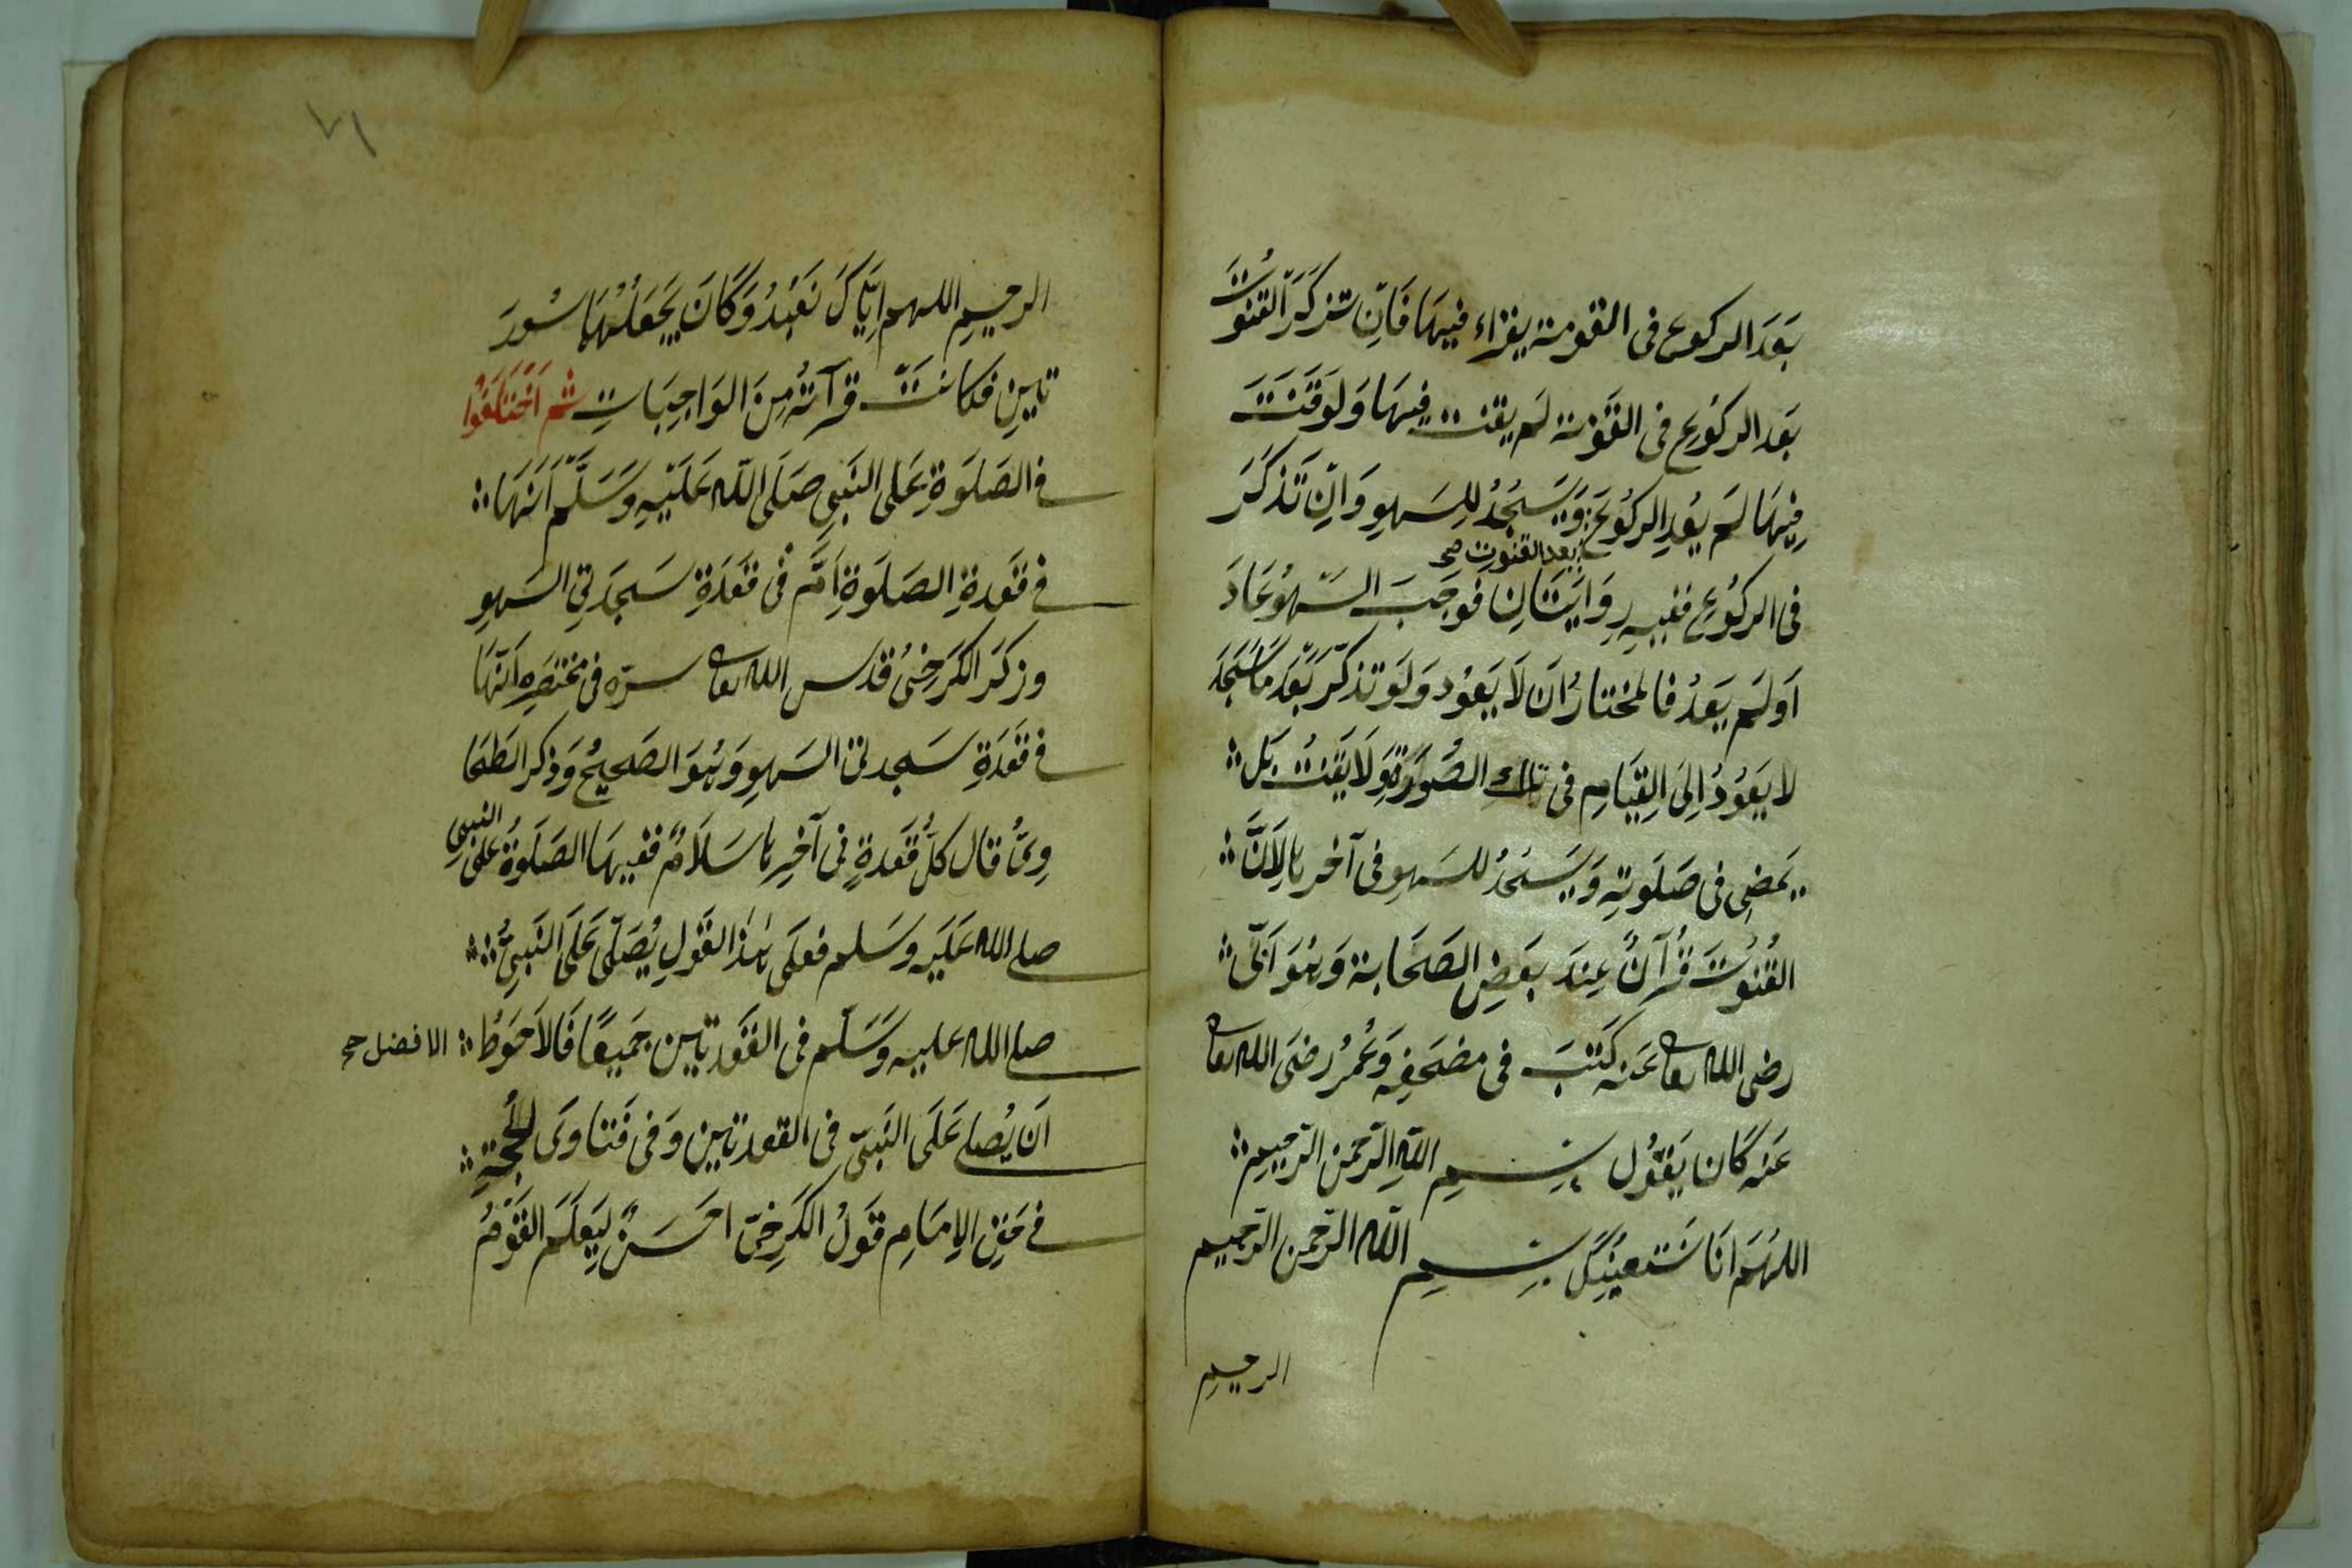 بَعَدَ الركوع فى القومة يقراء فيهَا فَاِن تذكَّرَ القنُوتَ
بَعَد الركُوعِ فى القَوْمة لم يقنت فِيهَا وَلَو قَنَتَ
فِيهَا لَم يُعِدِ الركُوعَ وَيَسَجُدُ للِسَهوِ وَاِن تَذكَّرَ
بعد القنوت صح
فى الركُوعِ ففيهِ رِوَايَتَانِ فوجَبَ السَهوُ عَادَ
اَو لَم يَعَدُ فالمختارُ اَن لَا يَعُود وَلَو تذكّرَ بَعَدَ مَا سَجَدَ
لا يَعَوُدُ اِلىَ القِيَامِ فى تلك الصُورَةِ وَلَا يَقَنُتُ بَل
يَمضِى فى صَلَوتِهِ وَيَسَجُدُ للسَهوِ فى آخرها لِاَنَّ
القُنُوتَ قُرآنٌ عِندَ بَعَضِ الصَحَابة وَهُوَ اُبَىّ
رضى الله تعا عَنه كَتَبَ فى مصَحَفِه وَعُمرُ رضىَ الله تعا
عَنه كَانَ يَقَوُل بِسمِ اللهِ الرّحمَن الرّحيِمِ
اللهُمَ اِنَا نَستَعِينُكَ بِسمِ الله الرّحمن الرّحيم
الرحيم
٧١
الرحيمِ اللهم اِيَّاكَ نَعَبُدُ وَكَانَ يَجَعَلُهُمَا سُورَ
تينِ فكانت قرآتهُ مِنَ الوَاجِبَاتِ ثم اَختَلَفُوا
فى الصَلَوةِ عَلى النَبىِ صَلَى الله عَلَيهِ وَسَلَّم اَنهَا
فى قَعَدةِ الصَلَوةِ اَم فى قَعَدَةِ سَجَدتىِ السَهوِ
وذكَرَ الكَرَخِىُ قدس الله تعا سرّه فى مختصَرِهِ اَنّهَا
فى قَعَدَةِ سَجدتى السَهوِ وَهُوَ الصَحيحُ وَذكر الطَحَا
وِىُّ قال كلُّ قَعَدةٍ فى آخِرِها سَلَامٌ ففيهَا الصَلوَةُ على النبىِ
صلى الله عَلَيه وسَلم فعلَى هٰذا القَولِ يُصَلّى عَلَى النَبىِّ
صلى الله عليه وَسَلّم فى القَعَدتين جَميعًا فَالاَحوَطُ
الافضل صح
اَن يُصلى عَلَى النَبىّ فى القعدتين وَفى فَتاوَى الحُجَّةِ
فى حَقِ الاِمَامِ قَولُ الكَرخِىّ احَسَنُ ليَعَلَمَ القَوَمُ